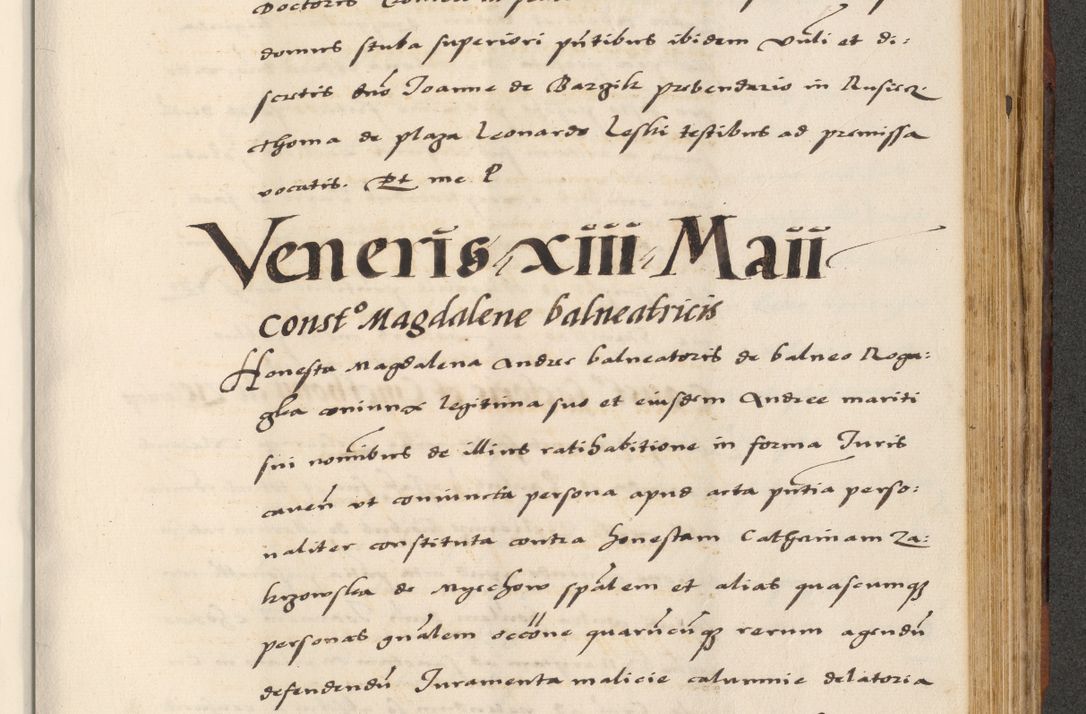 domus stuba superiori pñtibus ibidem vñli et di:
scretis dnõ Joanne de Bargik prebendario in Rusiecz.
Thoma de plaza Leonardo Leski testibus ad premissa
vocatis. Et me P
Veneris xiii Maii
Constº Magdalene balneatricis
Honesta Magdalena Andree balneatoris de balneo Roga:
ska coniunx legitima suo et eiusdem Andree mariti
sui nomĩbus de illius ratihabitione in forma Juris
caveñ ut coniuncta persona apud acta pñtia perso:
naliter constituta contra honestam Catherinam Za:
krzowska de Myechow spãlem et alias quascumqȝ
personas gñalem occõne quarũcũqȝ rerum agendũ
defendendũ Juramenta malicie calumnie delatoria